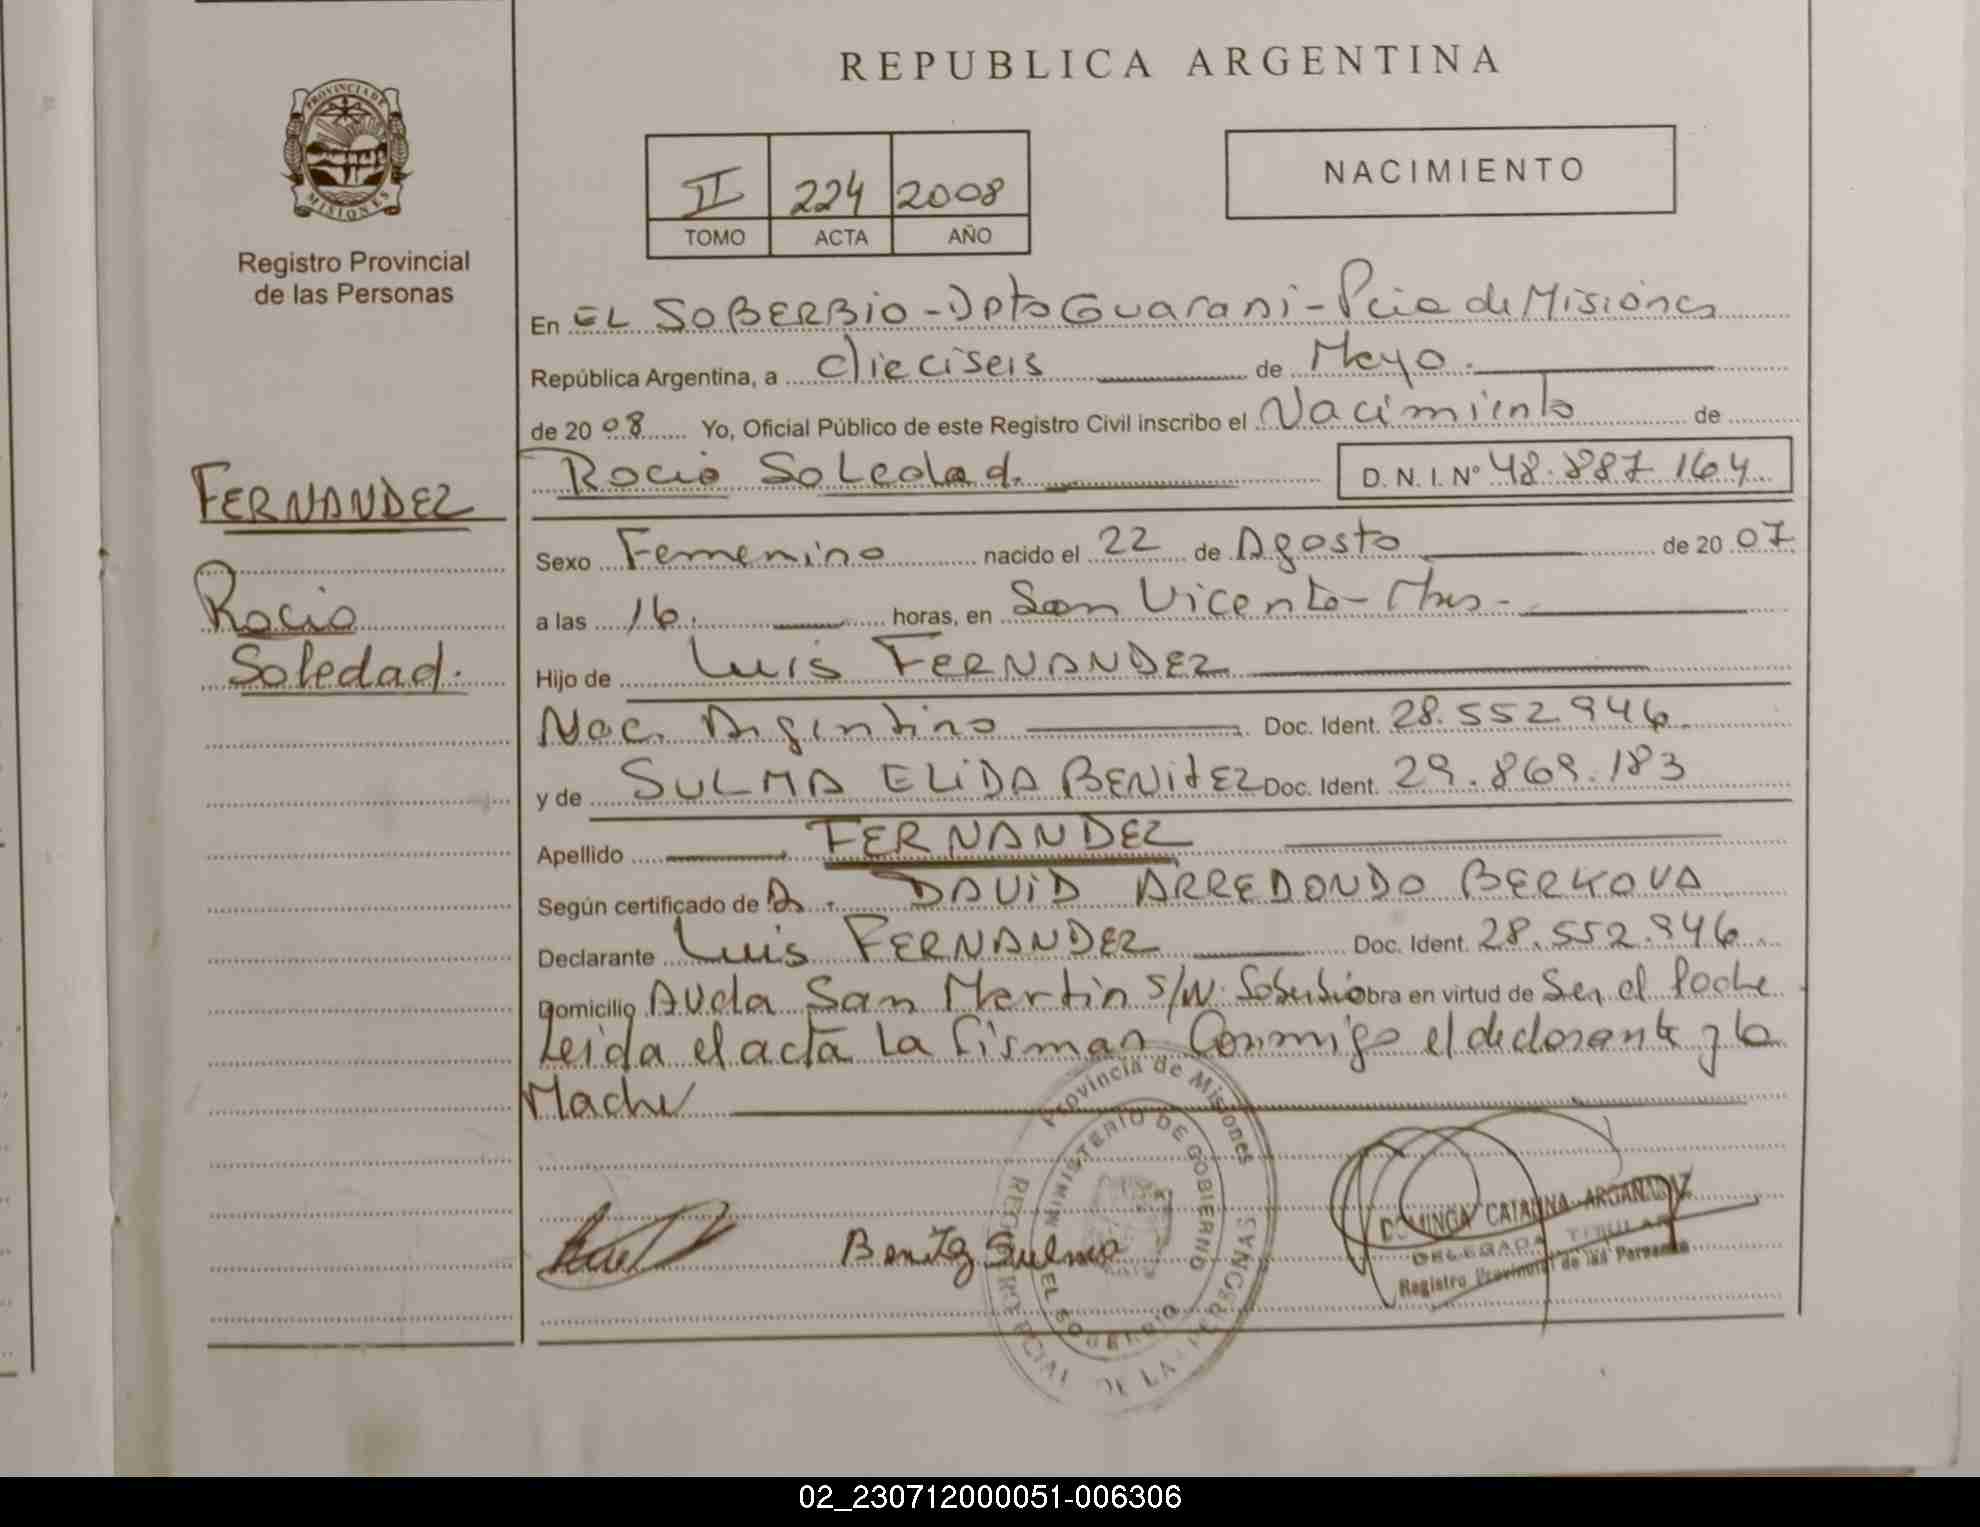 REPUBLICA ARGENTINA
PROVINCIA DE
MISIONES
Registro Provincial
de las Personas
II 224 2008
TOMO ACTA AÑO
NACIMIENTO
En EL SOBERBIO - Dpto Guarani - Pcia de Misiones
República Argentina, a dieciseis de Mayo.
de 2008 Yo, Oficial Público de este Registro Civil inscribo el Nacimiento de
Rocio Soledad. D. N. I. Nº 48.887.164
FERNANDEZ
Rocio
Soledad.
Sexo Femenino nacido el 22 de Agosto de 2007
a las 16. horas, en San Vicente - Mnes -
Hijo de Luis FERNANDEZ
Nac. Argentino Doc. Ident. 28.552.946
y de SULMA ELIDA BENITEZ Doc. Ident. 29.869.183
Apellido FERNANDEZ
Según certificado de Dr. DAVID ARREDONDO BERKOVA
Declarante Luis FERNANDEZ Doc. Ident. 28.552.946
Domicilio Avda San Martin S/N. Soberbio obra en virtud de Ser el Padre
Leida el acta la firman Conmigo el declarante y la
Madre
Provincia de Misiones
MINISTERIO DE GOBIERNO
EL SOBERBIO
REGISTRO PROVINCIAL DE LAS PERSONAS
Benitez Sulma
DOMINGA CATALINA ARGANARAZ
DELEGADA TITULAR
Registro Provincial de las Personas
02_230712000051-006306